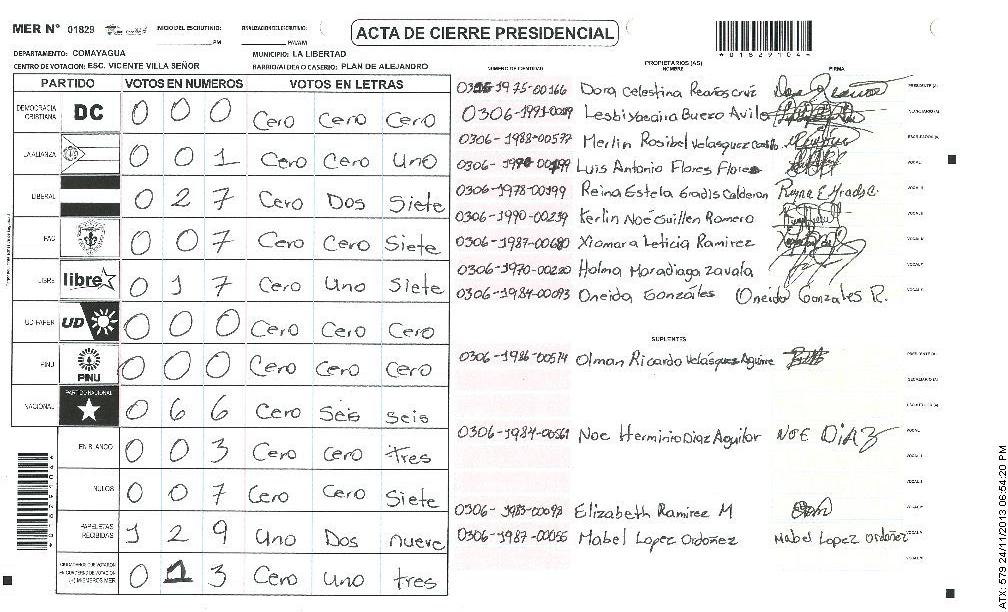 MER N° 01829
INICIO DEL ESCRUTINIO:
FINALIZACION DEL ESCRUTINIO:
PM
ACTA DE CIERRE PRESIDENCIAL
01829104
DEPARTAMENTO: COMAYAGUA
MUNICIPIO: LA LIBERTAD
CENTRO DE VOTACION: ESC. VICENTE VILLA SEÑOR
BARRIO/ALDEA O CASERIO: PLAN DE ALEJANDRO
PARTIDO VOTOS EN NUMEROS VOTOS EN LETRAS
DEMOCRACIA CRISTIANA DC 0 0 0 Cero Cero Cero
LA ALIANZA 0 0 1 Cero Cero Uno
LIBERAL 0 2 7 Cero Dos Siete
PAC 0 0 7 Cero Cero Siete
LIBRE libre 0 1 7 Cero Uno Siete
UD FAPER UD 0 0 0 Cero Cero Cero
PINU PINU 0 0 0 Cero Cero Cero
NACIONAL PARTIDO NACIONAL 0 6 6 Cero Seis Seis
EN BLANCO 0 0 3 Cero Cero tres
NULOS 0 0 7 Cero Cero Siete
PAPELETAS RECIBIDAS 1 2 9 Uno Dos nueve
CIUDADANOS QUE VOTARON EN CUADERNO DE VOTACION (+) MIEMBROS MER 0 1 3 Cero Uno tres
NUMERO DE IDENTIDAD
PROPIETARIOS (AS)
NOMBRE
FIRMA
1975-00166 Dora Celestina
0306-1991- Lesbi Buezo Avila
0306-1988-00577 Merlin Rosibel Velasquez
0306- Luis Antonio Flores Flores
0306-1978-00199 Reina Estela Gradis Calderan Reyna E Gradis C.
0306-1990-00239 Kerlin Noé Guillen Romero
0306-1987-00680 Xiomara Leticia Ramirez
0306-1970-00220 Holma Moradiaga Zavala
0306-1984-00093 Oneida Gonzáles Oneida Gonzales R.
SUPLENTES
0306-1986-00574 Olman Ricardo Velásquez Aguirre
0306-1984-00561 Noe Herminio Diaz Aguilar NOE DIAZ
0306-1983-00098 Elizabeth Ramirez M
0306-1987-00056 Mabel Lopez Ordoñez Mabel Lopez Ordoñez
ATX: 579 24/11/2013 06:54:20 PM